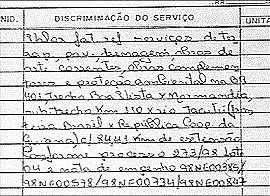 NID. DISCRIMINAÇÃO DO SERVIÇO UNITÁ
Valor fat. ref. serviços de ter
rap. pav. drenagem obras de
arte correntes obras complemen
tares e proteção ambiental na BR
401, trecho Boa Vista x Normandia
sub trecho km 110 x rio Tacutu (fron
teira Brasil x República Coop. da
Guiana) c/ 84,41 km de extensão
Conforme processo 273/98 Lote
04 e nota de empenho 98NE00385/
98NE00578/98NE00734/98NE00847